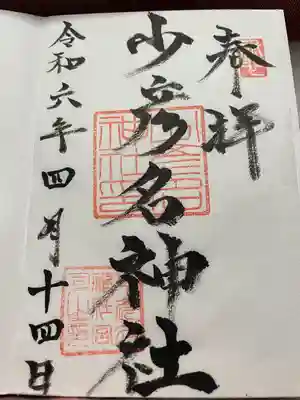 奉拝
少彦名神社
令和六年四月十四日